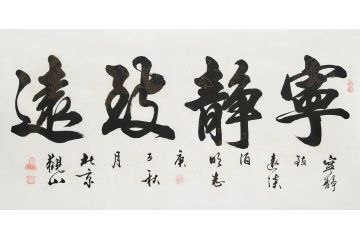 寧靜致遠
寧靜
致
遠淡
泊
明志
庚
子秋
月
北京
觀山